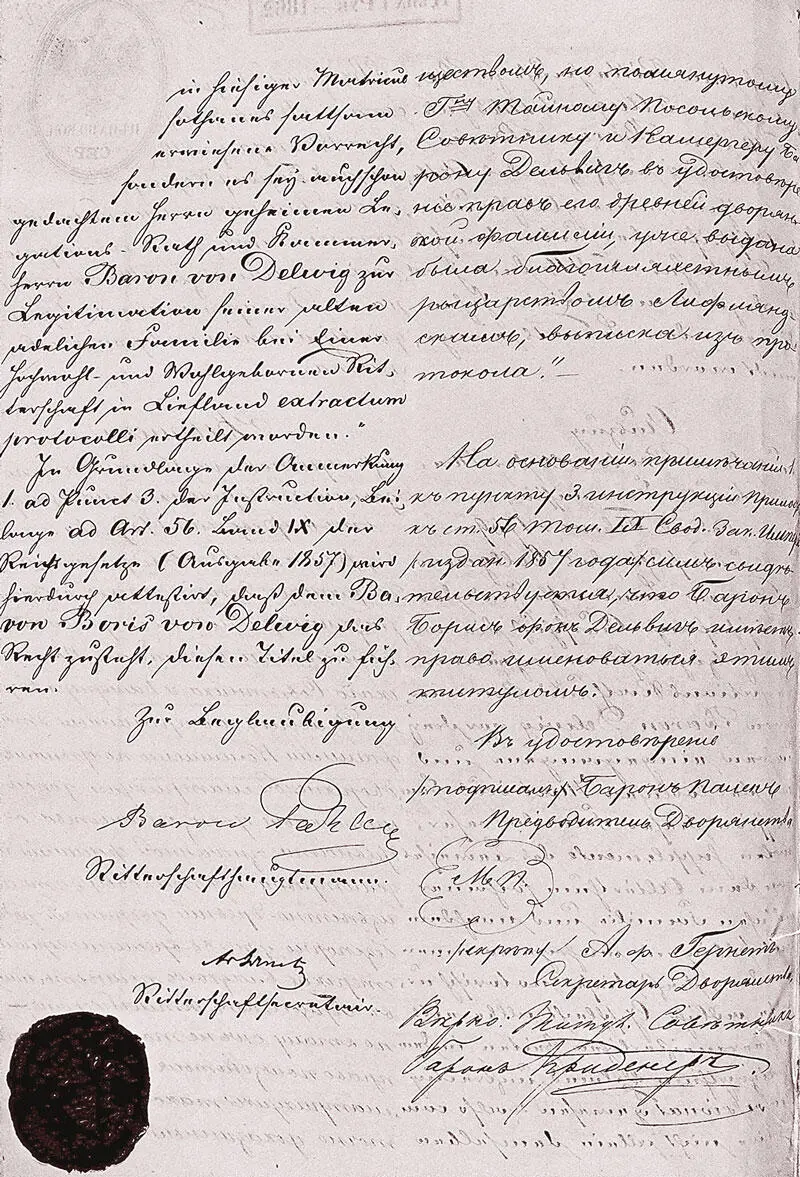 in hiesiger Matricul
sothanes sattsam
erwiesene Vorrecht,
sondern es sey auch schon
gedachtem Herrn geheimen Le-
gations-Rath und Kammer-
herrn Baron von Delwig zur
Legitimation seiner alten
adelichen Familie bei Einer
Hochwohl- und Wohlgebornen Rit-
terschaft in Liefland extractum
protocolli ertheilt worden."
In Grundlage der Anmerkung
1. ad Punct 3. der Instruction, Bei-
lage ad Art. 56. Band IX der
Reichsgesetze (Ausgabe 1857) wird
hierdurch attestirt, daß dem Ba-
ron Boris von Delwig das
Recht zusteht, diesen Titel zu füh-
ren.
Zur Beglaubigung
Baron Pahlen
Ritterschafthauptmann.
Ritterschaftsecretair.
ществомъ, но помянутому
Гну Тайному Посольскому
Совѣтнику и Камергеру Ба-
рону Дельвигъ въ удостовѣре
ніе правъ его древней дворян-
ской фамиліи, уже выдана
была благопочтеннымъ
рыцарствомъ Лифлянд-
скимъ, выписка изъ про-
токола."—
На основаніи примѣчанія 1.
къ пункту 3. инструкціи Прилож.
къ ст. 56 том. IX Свод. Зак. Импер
/издан. 1857 года/ симъ свидѣ-
тельствуется, что Баронъ
Борисъ фонъ Дельвигъ имѣетъ
право именоваться этимъ
титуломъ.
Въ удостовѣреніе
/:подписалъ:/ Баронъ Паленъ
Предводитель Дворянства
М.П.
/:скрѣпилъ А. ф. Гернетъ
Секретарь Дворянства
Вѣрно: Титул. Совѣтника
Баронъ Криденеръ.